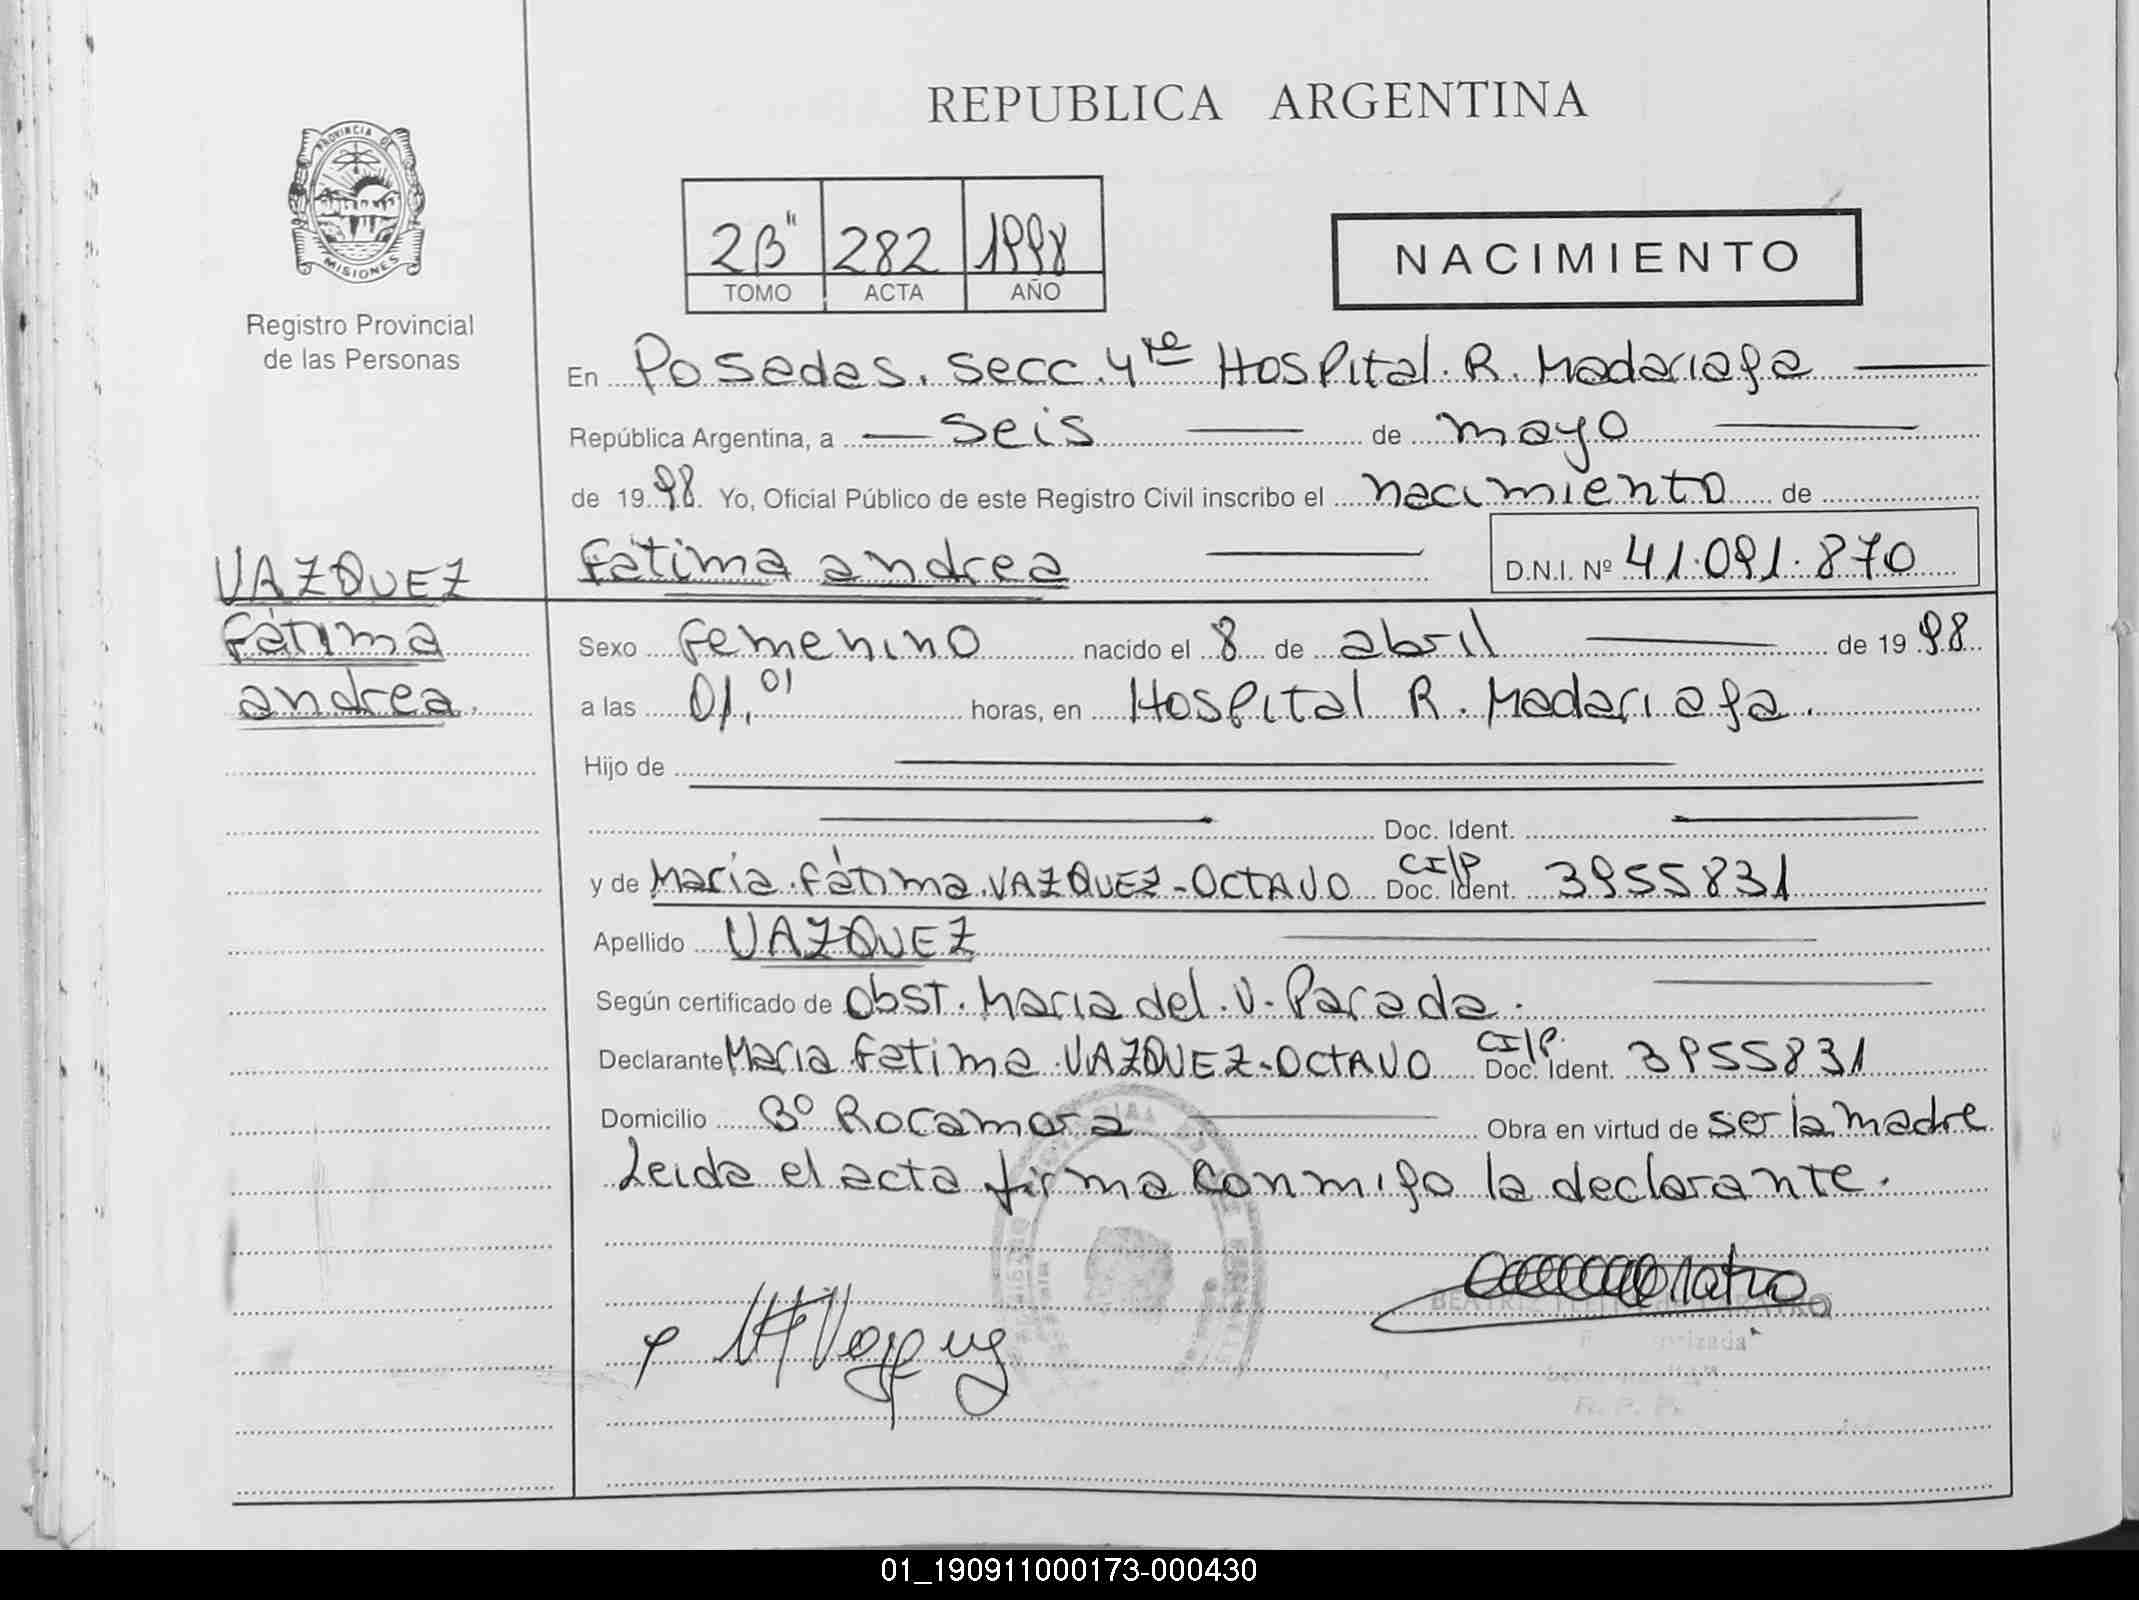 REPUBLICA ARGENTINA
PROVINCIA DE
MISIONES
Registro Provincial
de las Personas
2B" 282 1998
TOMO ACTA AÑO
NACIMIENTO
En Posadas. secc. 4ta Hospital. R. Madariaga
República Argentina, a seis de mayo
de 1998. Yo, Oficial Público de este Registro Civil inscribo el nacimiento de
VAZQUEZ
Fátima
andrea.
Fátima andrea D.N.I. Nº 41.091.870
Sexo Femenino nacido el 8 de abril de 1998
a las 01,01 horas, en Hospital R. Madariaga.
Hijo de
Doc. Ident.
y de María. Fátima. VAZQUEZ-OCTAVO CI/P Doc. Ident. 3955831
Apellido VAZQUEZ
Según certificado de Obst. Maria del. V. Parada.
Declarante Maria Fatima. VAZQUEZ-OCTAVO CI/P. Doc. Ident. 3955831
Domicilio Bº Rocamora Obra en virtud de ser la madre
Leida el acta firma conmigo la declarante.
BEATRIZ
R. P. P.
01_190911000173-000430